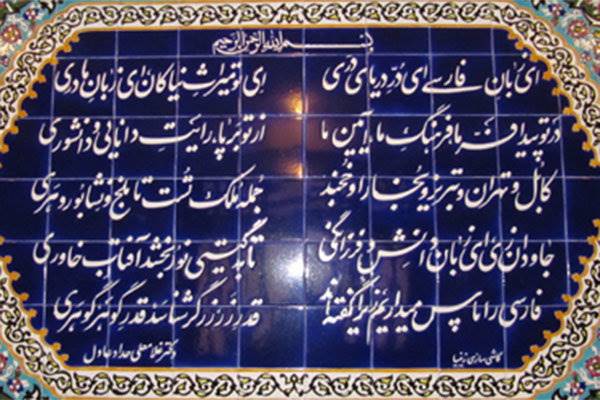 بسم الله الرحمن الرحیم
ای زبان فارسی ای دُرِّ دریای دری ای تو میراث نیاکان ای زبان مادری
در تو پیدا فرّ ما فرهنگ ما آیین ما از تو برپا رایت دانایی و دانشوری
کابل و تهران و تبریز و بخارا و خجند جمله ملک تست تا بلخ و نشابور و هری
جاودان زی ای زبان دانش و فرزانگی تا به گیتی نور بخشد آفتاب خاوری
فارسی را پاس میداریم زیرا گفته‌اند قدر زر زرگر شناسد قدر گوهر گوهری
کاشی سازی زیبا دکتر غلامعلی حداد عادل